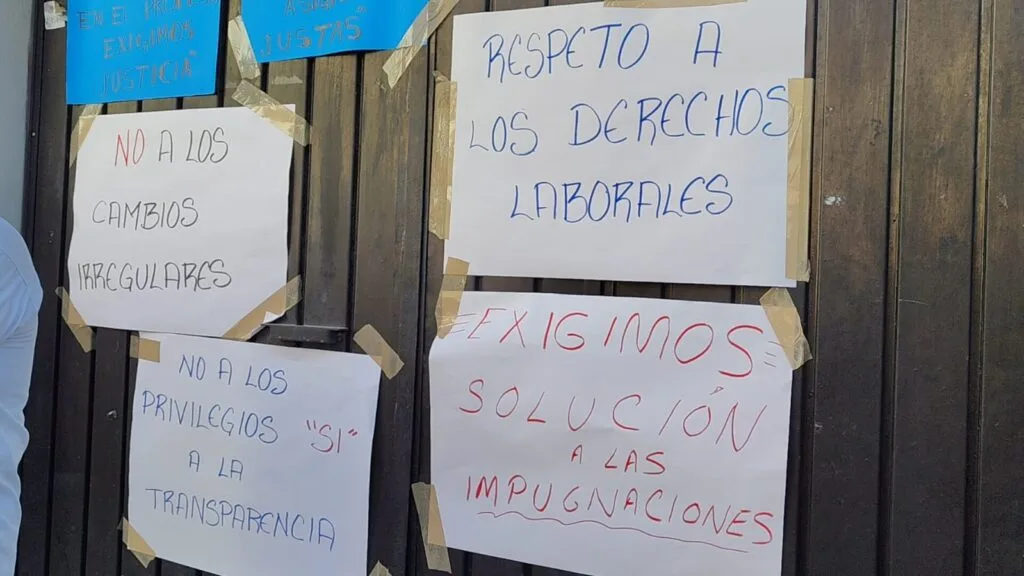 EN EL
EXIGIMOS
JUSTICIA"
JUSTAS"
NO A LOS
CAMBIOS
IRREGULARES
RESPETO A
LOS DERECHOS
LABORALES
NO A LOS
PRIVILEGIOS "SI"
A LA
TRANSPARENCIA
=EXIGIMOS=
SOLUCIÓN
A LAS
IMPUGNACIONES